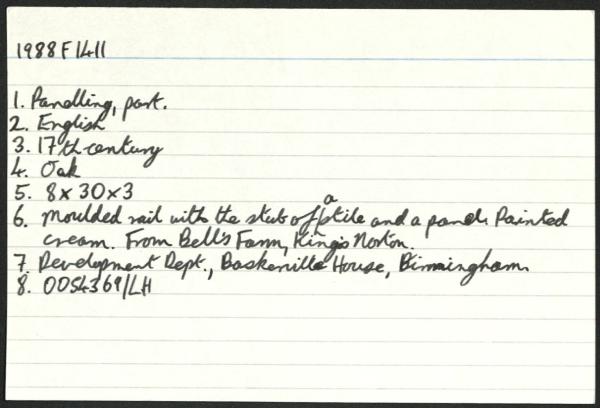 1988F1411
1. Panelling, part.
2. English
3. 17th century
4. Oak
5. 8 x 30 x 3
6. Moulded rail with the stub of a stile and a panel. Painted
cream. From Bell's Farm, King's Norton.
7. Development Dept., Baskerville House, Birmingham
8. OOS4369/LH